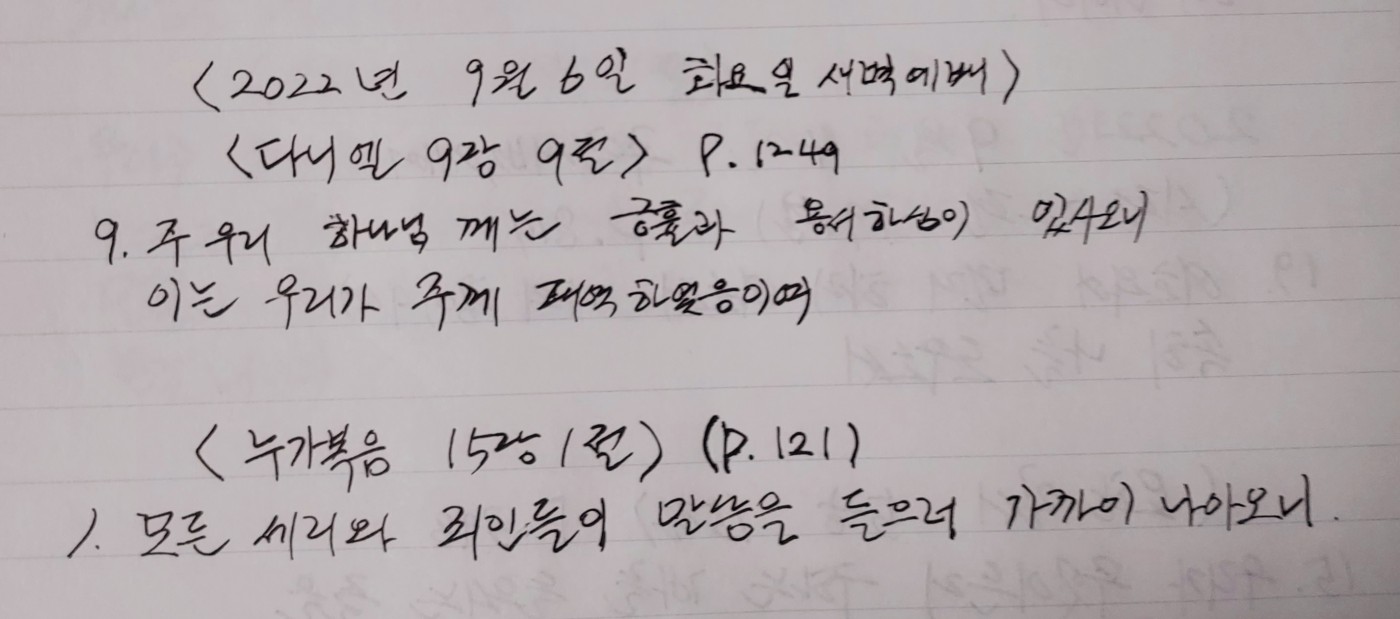 <2022년 9월 6일 화요일 새벽예배>
<다니엘 9장 9절> P. 1249
9. 주 우리 하나님 께는 긍휼과 용서하심이 있사오니
이는 우리가 주께 패역하였음이며
<누가복음 15장 1절> (P. 121)
1. 모든 세리와 죄인들이 말씀을 들으러 가까이 나아오니.